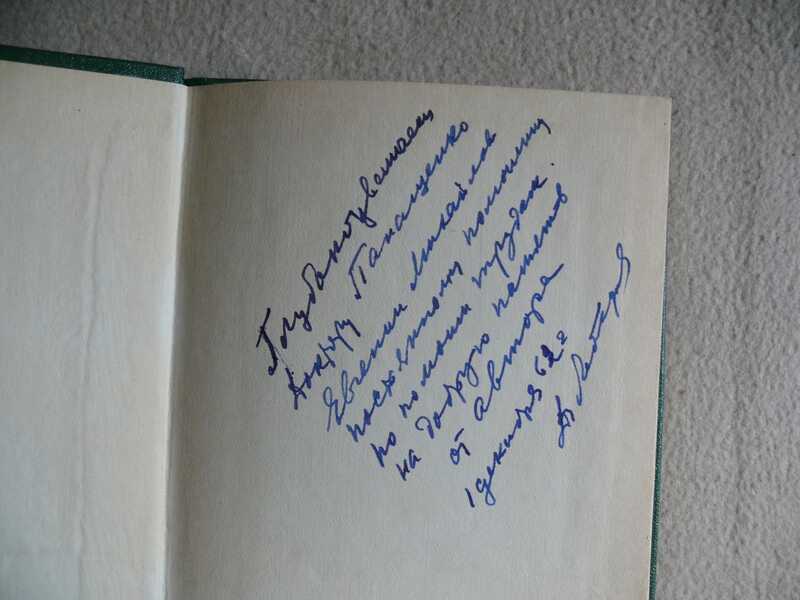 Глубокоуважаем
доктору Панащенко
Евгении Михайлов
постоянному помощни
по моим трудам.
на добрую память
от автора
1 декабря 62 г